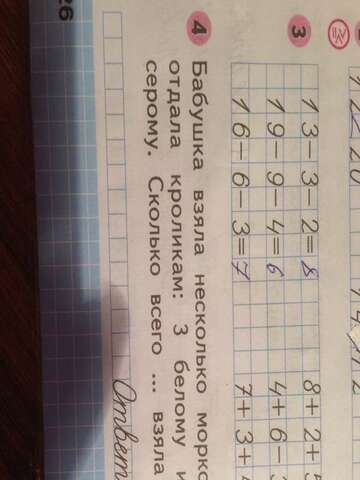 3
13-3-2=8 8+2+
19-9-4=6 4+6-
16-6-3=7 7+3+
4 Бабушка взяла несколько
отдала кроликам: 3 белому и
серому. Сколько всего ... взяла
Ответ
26